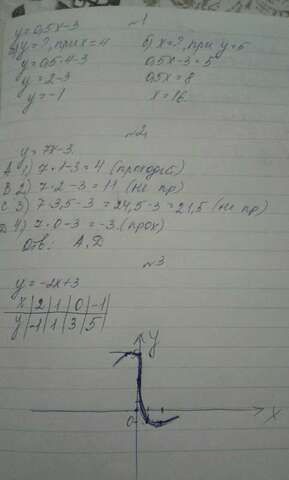 №1
y=0,5x-3
а) y=?, при x=4 б) x=?, при y=5
y=0,5·4-3 0,5x-3=5
y=2-3 0,5x=8
y=-1 x=16
№2
y=7x-3
А 1) 7·1-3=4 (проходит)
В 2) 7·2-3=11 (не пр)
С 3) 7·3,5-3=24,5-3=21,5 (не пр)
Д 4) 7·0-3=-3 (прох)
Отв: А, Д
№3
y=-2x+3
x | 2 | 1 | 0 | -1
y | -1 | 1 | 3 | 5
y
0 x